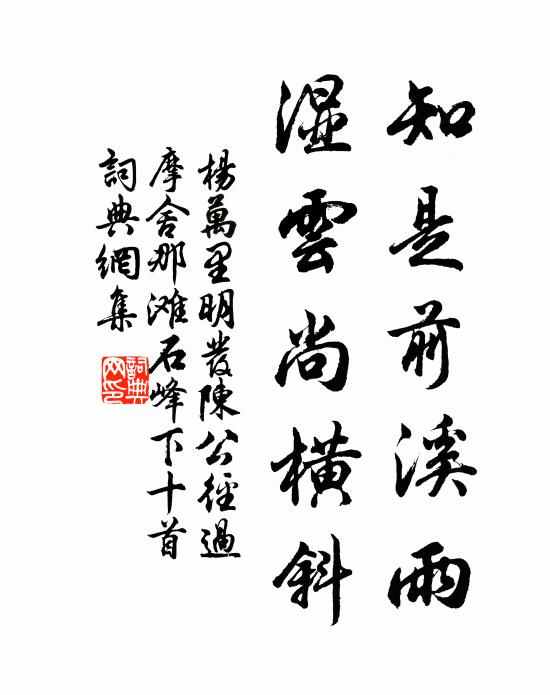 知是前溪雨
湿雲尚橫斜
楊萬里明發陳公徑過
摩舍那滩石峰下十首
詞典網集
詞典网印